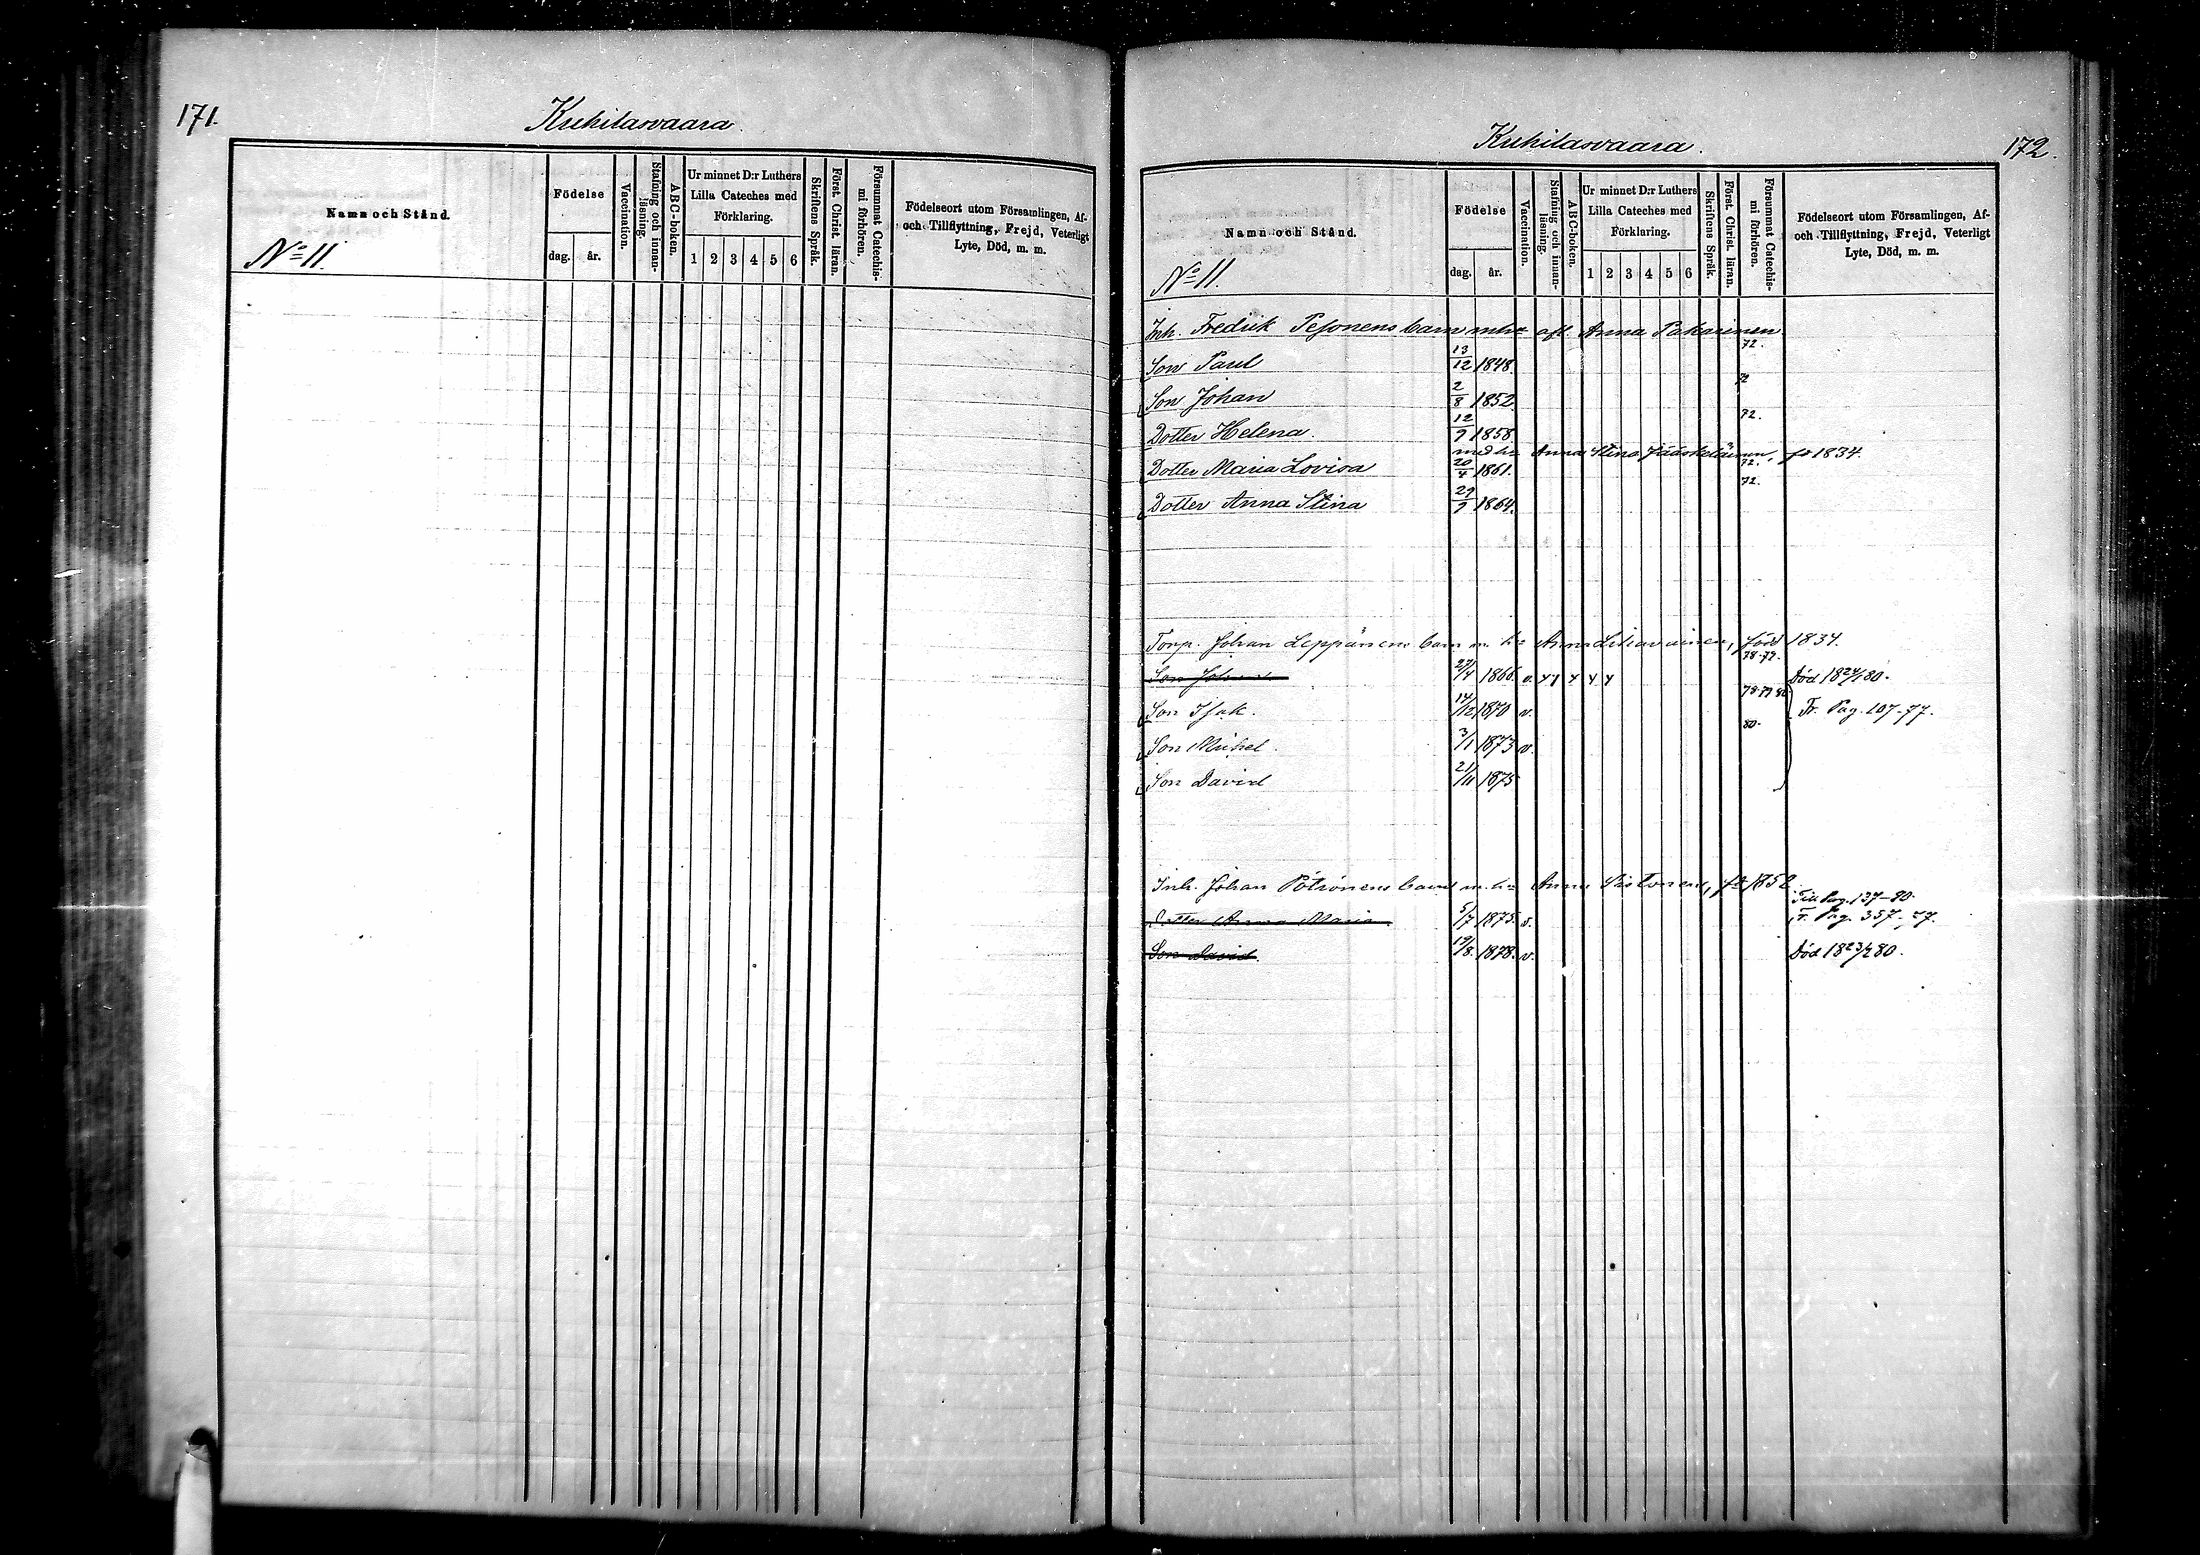 171.
Kuhilasvaara.
Namn och Stånd.
No 11.
Födelse
dag. år.
Vaccination.
Stafning och innan-
läsning.
ABC-boken.
Ur minnet D:r Luthers
Lilla Cateches med
Förklaring.
1 2 3 4 5 6
Skriftens Språk.
Först. Christ. läran.
Försummat Catechis-
mi förhören.
Födelseort utom Församlingen, Af-
och Tillflyttning, Frejd, Veterligt
Lyte, Död, m. m.
Kuhilasvaara.
172.
Namn och Stånd.
No 11.
Födelse
dag. år.
Vaccination.
Stafning och innan-
läsning.
ABC-boken.
Ur minnet D:r Luthers
Lilla Cateches med
Förklaring.
1 2 3 4 5 6
Skriftens Språk.
Först. Christ. läran.
Försummat Catechis-
mi förhören.
Födelseort utom Församlingen, Af-
och Tillflyttning, Frejd, Veterligt
Lyte, Död, m. m.
Inh. Fredrik Pesonens barn afl. Anna Pakarinen
Son Paul 13/12 1848. 72.
Son Johan 2/8 1852 72
Dotter Helena. 12/9 1858. 72.
med h. Anna Stina Jääskeläinen, fö 1834.
Dotter Maria Lovisa 20/4 1861. 72.
Dotter Anna Stina 29/9 1864. 72.
Torp. Johan Leppänens barn m. h. Anna född 1834.
Son Johan 27/4 1866. v. 78-79. Död 18 24/1 80.
Son Isak. 14/12 1870 v. 78-79 80 Fr. Pag. 107-77.
Son Mickel. 3/1 1873 v. 80.
Son David 21/11 1875
Inh. Johan Pötrönens barn m. h. Anna Sistonen, fö 1852
Till Pag. 137-80.
Dotter Anna Maria 5/7 1875. v. Fr. Pag. 357-77.
Son David 19/8. 1878. v. Död 18 23/2 80.